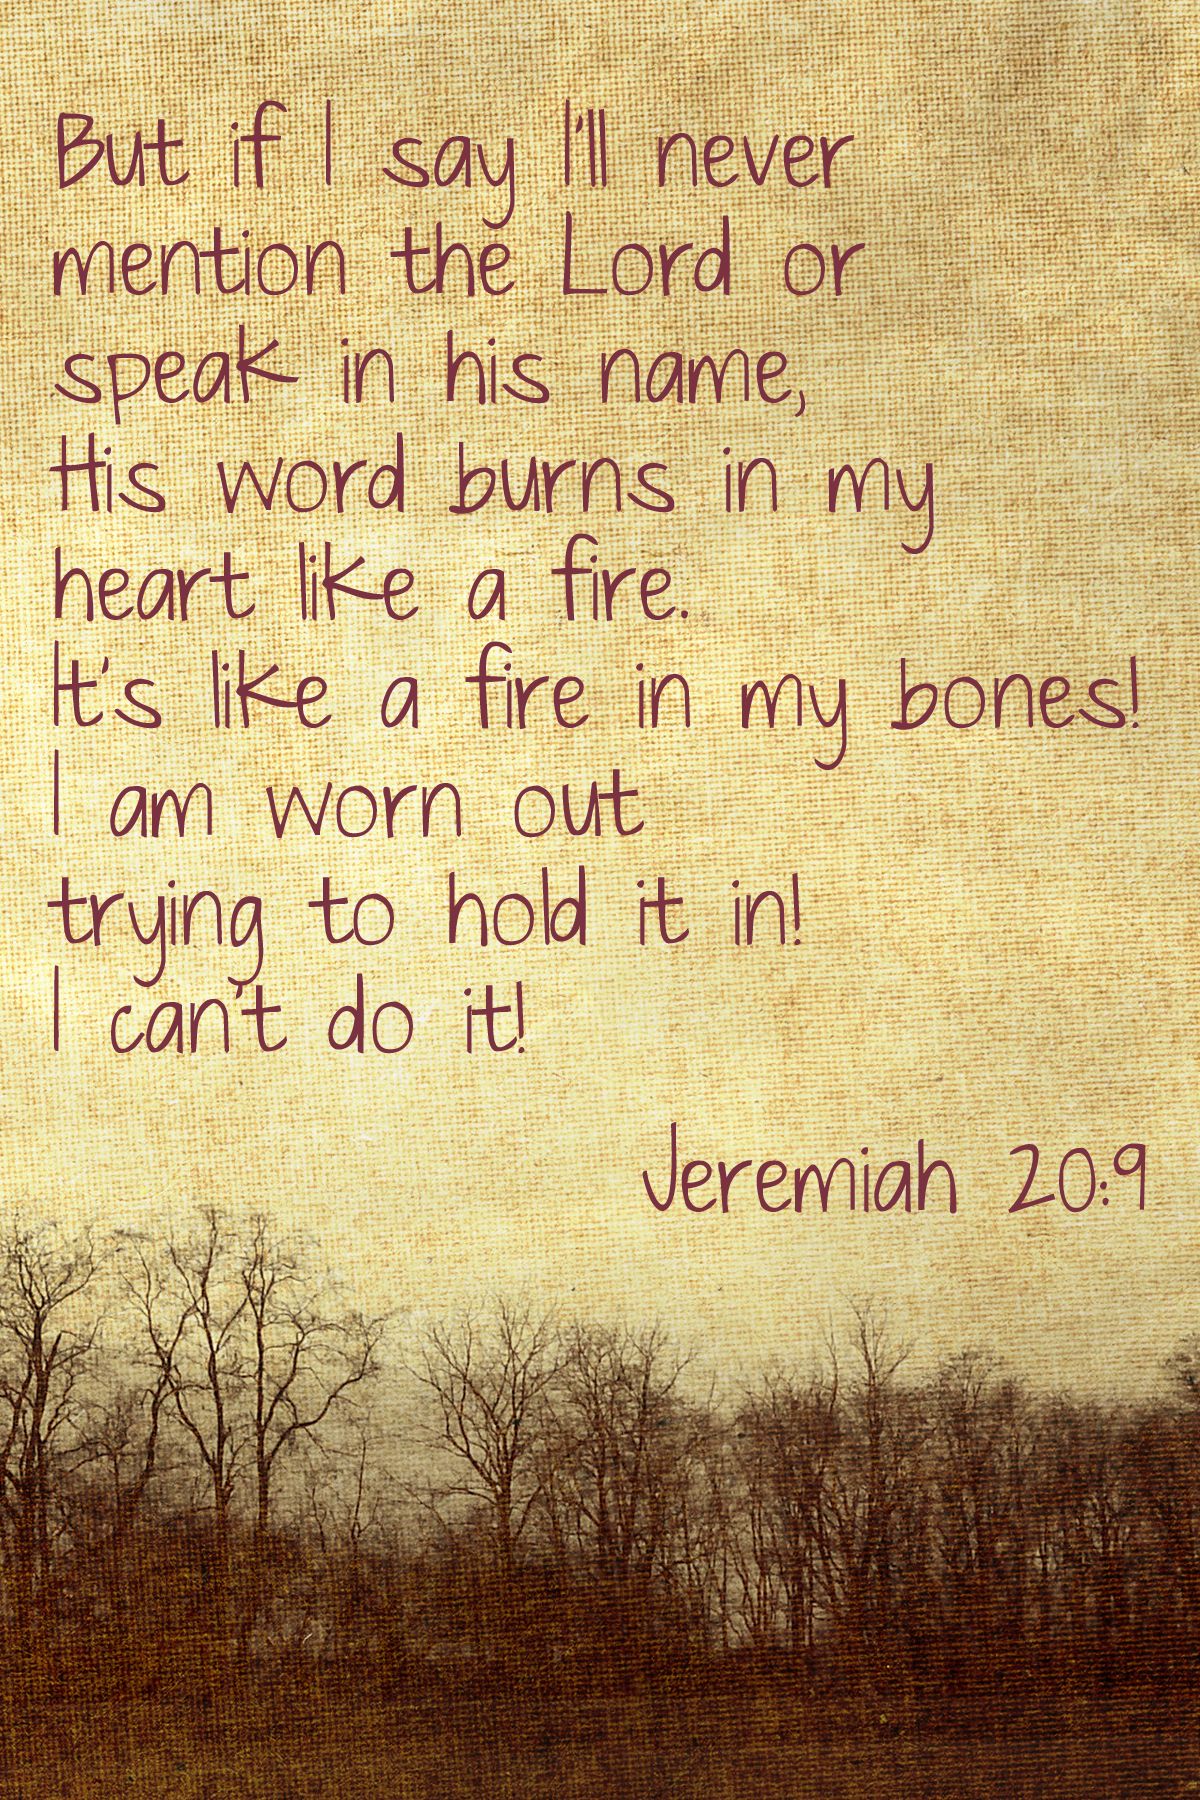 But if I say I'll never
mention the Lord or
speak in his name,
His word burns in my
heart like a fire.
It's like a fire in my bones!
I am worn out
trying to hold it in!
I can't do it!
Jeremiah 20:9